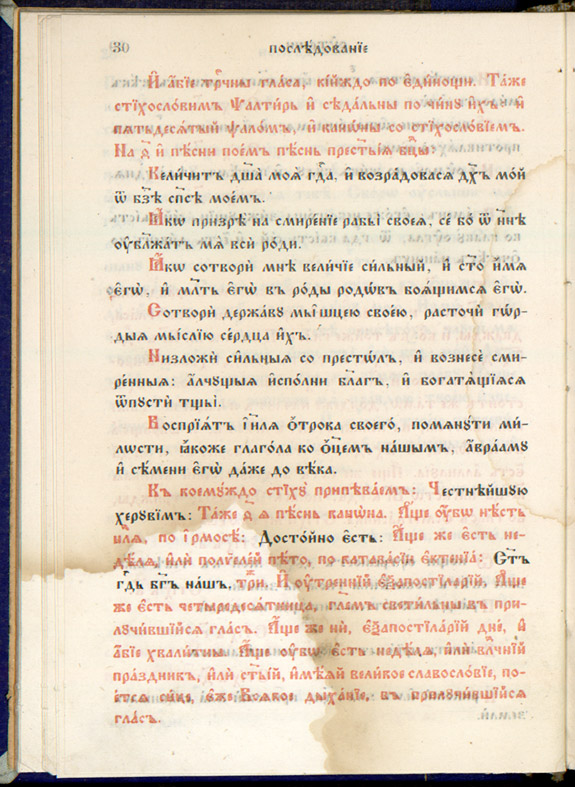 30 послѣ́дованїе
И҆ а҆́бїе трⷪ҇чны гла́са, кі́йждо по є҆ди́нощи. Та́же
стїхосло́вимъ Ѱалти́рь и҆ сѣда̑льны по чи́нꙋ и҆́хъ: и҆
пѧтьдесѧ́тый ѱало́мъ, и҆ канѡ́ны со стїхосло́вїемъ.
На ѳ҃ и҆ пѣ́сни пое́мъ пѣ́снь прест҃ы́ѧ бцⷣы:
Вели́читъ дш҃а̀ моѧ̀ гдⷭ҇а, и҆ возра́довасѧ дх҃ъ мо́й
ѡ҆ бз҃ѣ сп҃сѣ мое́мъ.
Ꙗ҆́кѡ призрѣ̀ на смире́нїе рабы̀ своеѧ̀, се́ бо ѿ нн҃ѣ
ᲂу҆блж҃а́тъ мѧ̀ всѝ ро́ди.
Ꙗ҆́кѡ сотворѝ мнѣ̀ вели́чїе си́льный, и҆ ст҃о и҆́мѧ
є҆гѡ̀, и҆ млⷭ҇ть є҆гѡ̀ въ ро́ды родѡ́въ боѧ́щимсѧ є҆гѡ̀.
Сотворѝ держа́вꙋ мы́шцею свое́ю, расточѝ гѡ́р-
дыѧ мы́слїю се́рдца и҆́хъ.
Низложѝ си́льныѧ со престѡ́лъ, и҆ вознесѐ сми-
ре́нныѧ: а҆́лчꙋщыѧ и҆спо́лни бла́гъ, и҆ богатѧ́щїѧсѧ
ѿпꙋстѝ тщы̀.
Воспрїѧ́тъ і҆и҃лѧ ѻ҆́трока своего̀, помѧнꙋ́ти ми́-
лѡсти, ꙗ҆́коже глаго́ла ко ѻ҆ц҃е́мъ на́шымъ, а҆враа́мꙋ
и҆ сѣ́мени є҆гѡ̀ да́же до вѣ́ка.
Къ коемꙋ́ждо стїхꙋ̀ припѣва́емъ: Честнѣ́йшꙋю
херꙋві̑мъ: Та́же ѳ҃ ѧ пѣ́снь канѡ́на. А҆́ще ᲂу҆́бѡ нѣ́сть
нлⷣѧ, по і҆рмосѣ̀: Досто́йно є҆́сть: А҆́ще же є҆́сть не-
дѣ́лѧ, и҆лѝ полѵеле́й пѣ́то, по катава́сїи є҆ктенїа̀: Ст҃ъ
гдⷭ҇ь бг҃ъ на́шъ, три́. И҆ ᲂу҆́тренній є҆ѯапостїла́рїй. А҆́ще
же є҆́сть четыредесѧ́тница, гл҃емъ свѣти́льны въ при-
лꙋчи́вшїйсѧ гла́съ. А҆́ще же нѝ, є҆ѯапостїла́рїй днѐ, и҆
а҆́бїе хвали́тны. А҆́ще ᲂу҆́бѡ є҆́сть недѣ́лѧ, и҆лѝ влⷣчній
пра́здникъ, и҆лѝ ст҃ы́й, и҆мѣ́ѧй вели́кое славосло́вїе, по-
е́тсѧ си́це, є҆́же Всѧ́кое дыха́нїе, въ прилꙋчи́вшїйсѧ
гла́съ.